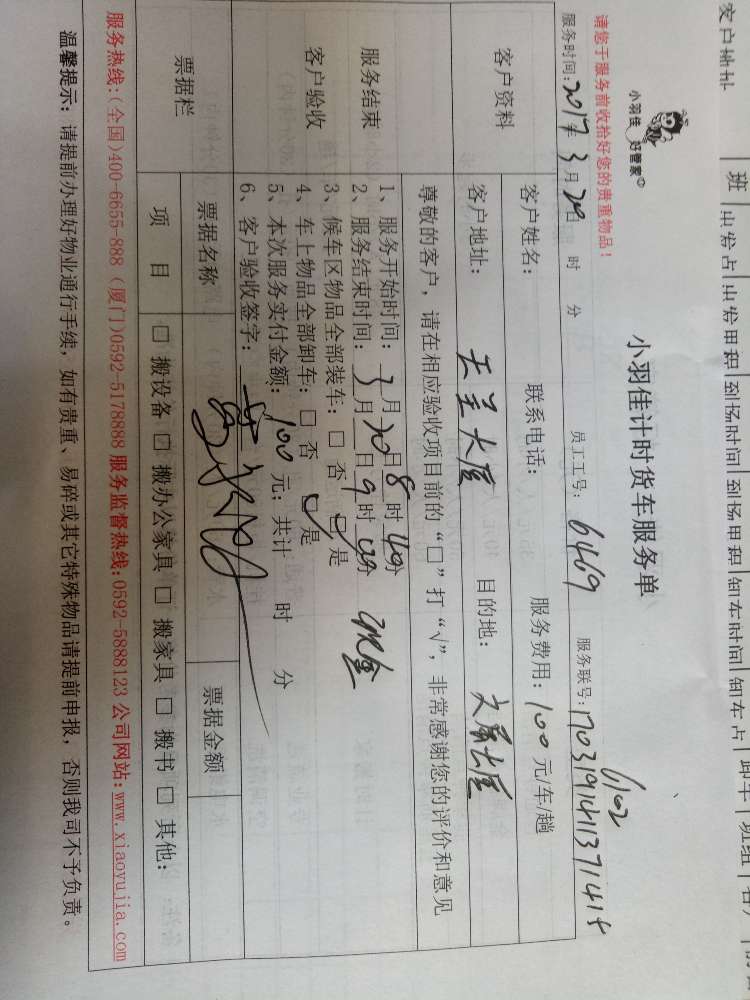 客户地址
班 出发点 出发里程 到场时间 到场里程 卸车时间 卸车点 卸车 班组 客户
小羽佳 好管家
小羽佳计时货车服务单
请您于服务前收拾好您的贵重物品!
服务时间:2017年3月20日 时 分 员工工号:6469 服务联号:1703191411371414
6102
客户资料
客户姓名: 联系电话: 服务费用:100元/车/趟
客户地址: 目的地:
尊敬的客户,请在相应验收项目前的“□”打“√”,非常感谢您的评价和意见
服务结束
客户验收
1、服务开始时间:3月20日8时40分
2、服务结束时间:3月20日9时00分 现金
3、候车区物品全部装车:□ 否 ☑ 是
4、车上物品全部卸车:□ 否 ☑ 是
5、本次服务实付金额:100元;共计 时 分
6、客户验收签字:
票据栏
票据名称 票据金额
项 目 □ 搬设备 □ 搬办公家具 □ 搬家具 □ 搬书 □ 其他:
服务热线:(全国)400-6655-888 (厦门)0592-5178888 服务监督热线:0592-5888123 公司网站:www.xiaoyujia.com
温馨提示:请提前办理好物业通行手续,如有贵重、易碎或其它特殊物品请提前申报,否则我司不予负责。